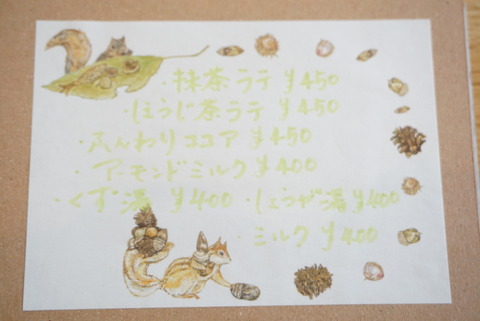 ・抹茶ラテ ¥450
・ほうじ茶ラテ ¥450
・ふんわりココア ¥450
・アーモンドミルク ¥400
・くず湯 ¥400 ・しょうが湯 ¥400
・ミルク ¥400